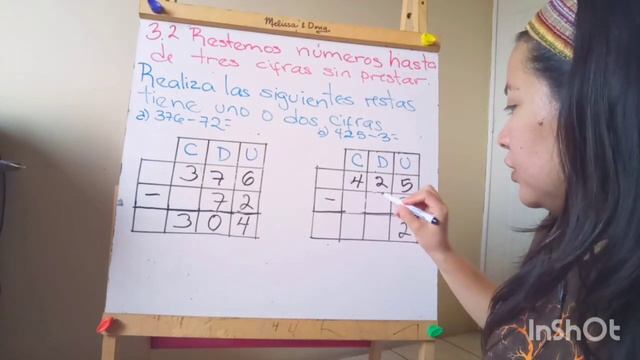 Melissa & Doug
3.2 Restemos números hasta
de tres cifras sin prestar.
Realiza las siguientes restas
tiene uno o dos cifras
a) 376-72=
b) 425-3=
C D U
3 7 6
- 7 2
3 0 4
C D U
4 2 5
-
2
InShOt